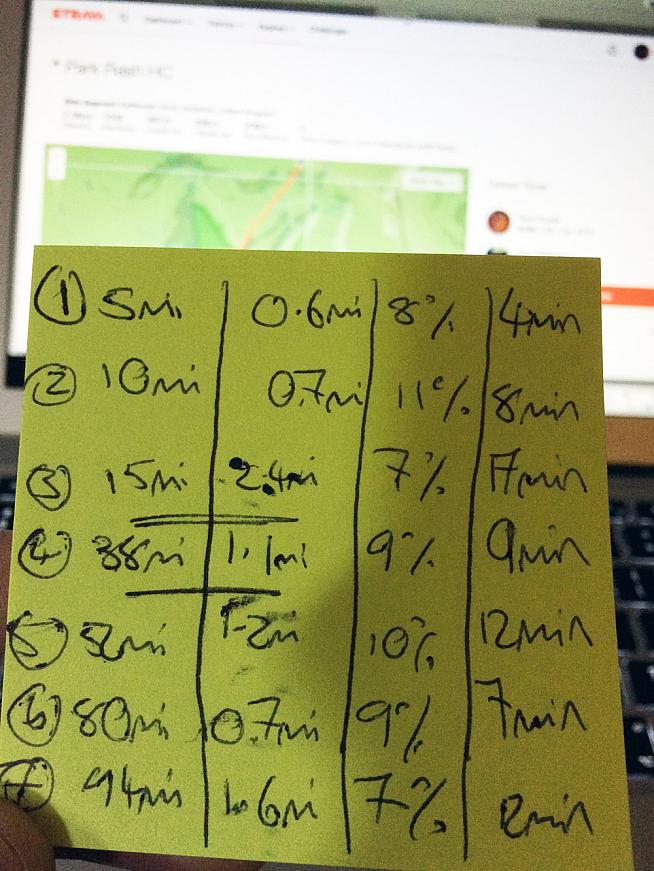 STRAVA
Park Rash HC
① 5mi 0.6mi 8% 4min
② 10mi 0.7mi 11% 8min
③ 15mi 2.4mi 7% 17min
④ 38mi 1.1mi 9% 9min
⑤ 52mi 1.2mi 10% 12min
⑥ 80mi 0.7mi 9% 7min
⑦ 94mi 1.6mi 7% 12min